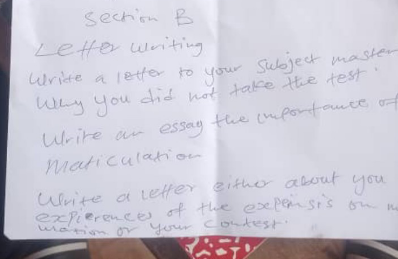 Section B
Letter writing
Write a letter to your subject master
Why you did not take the test.
Write an essay the importance of
Maticulation
Write a letter either about you
expierences of the expensis on
or your contest.